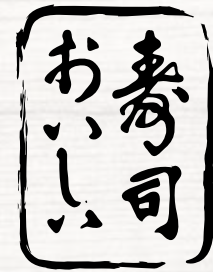 寿司
おいしい